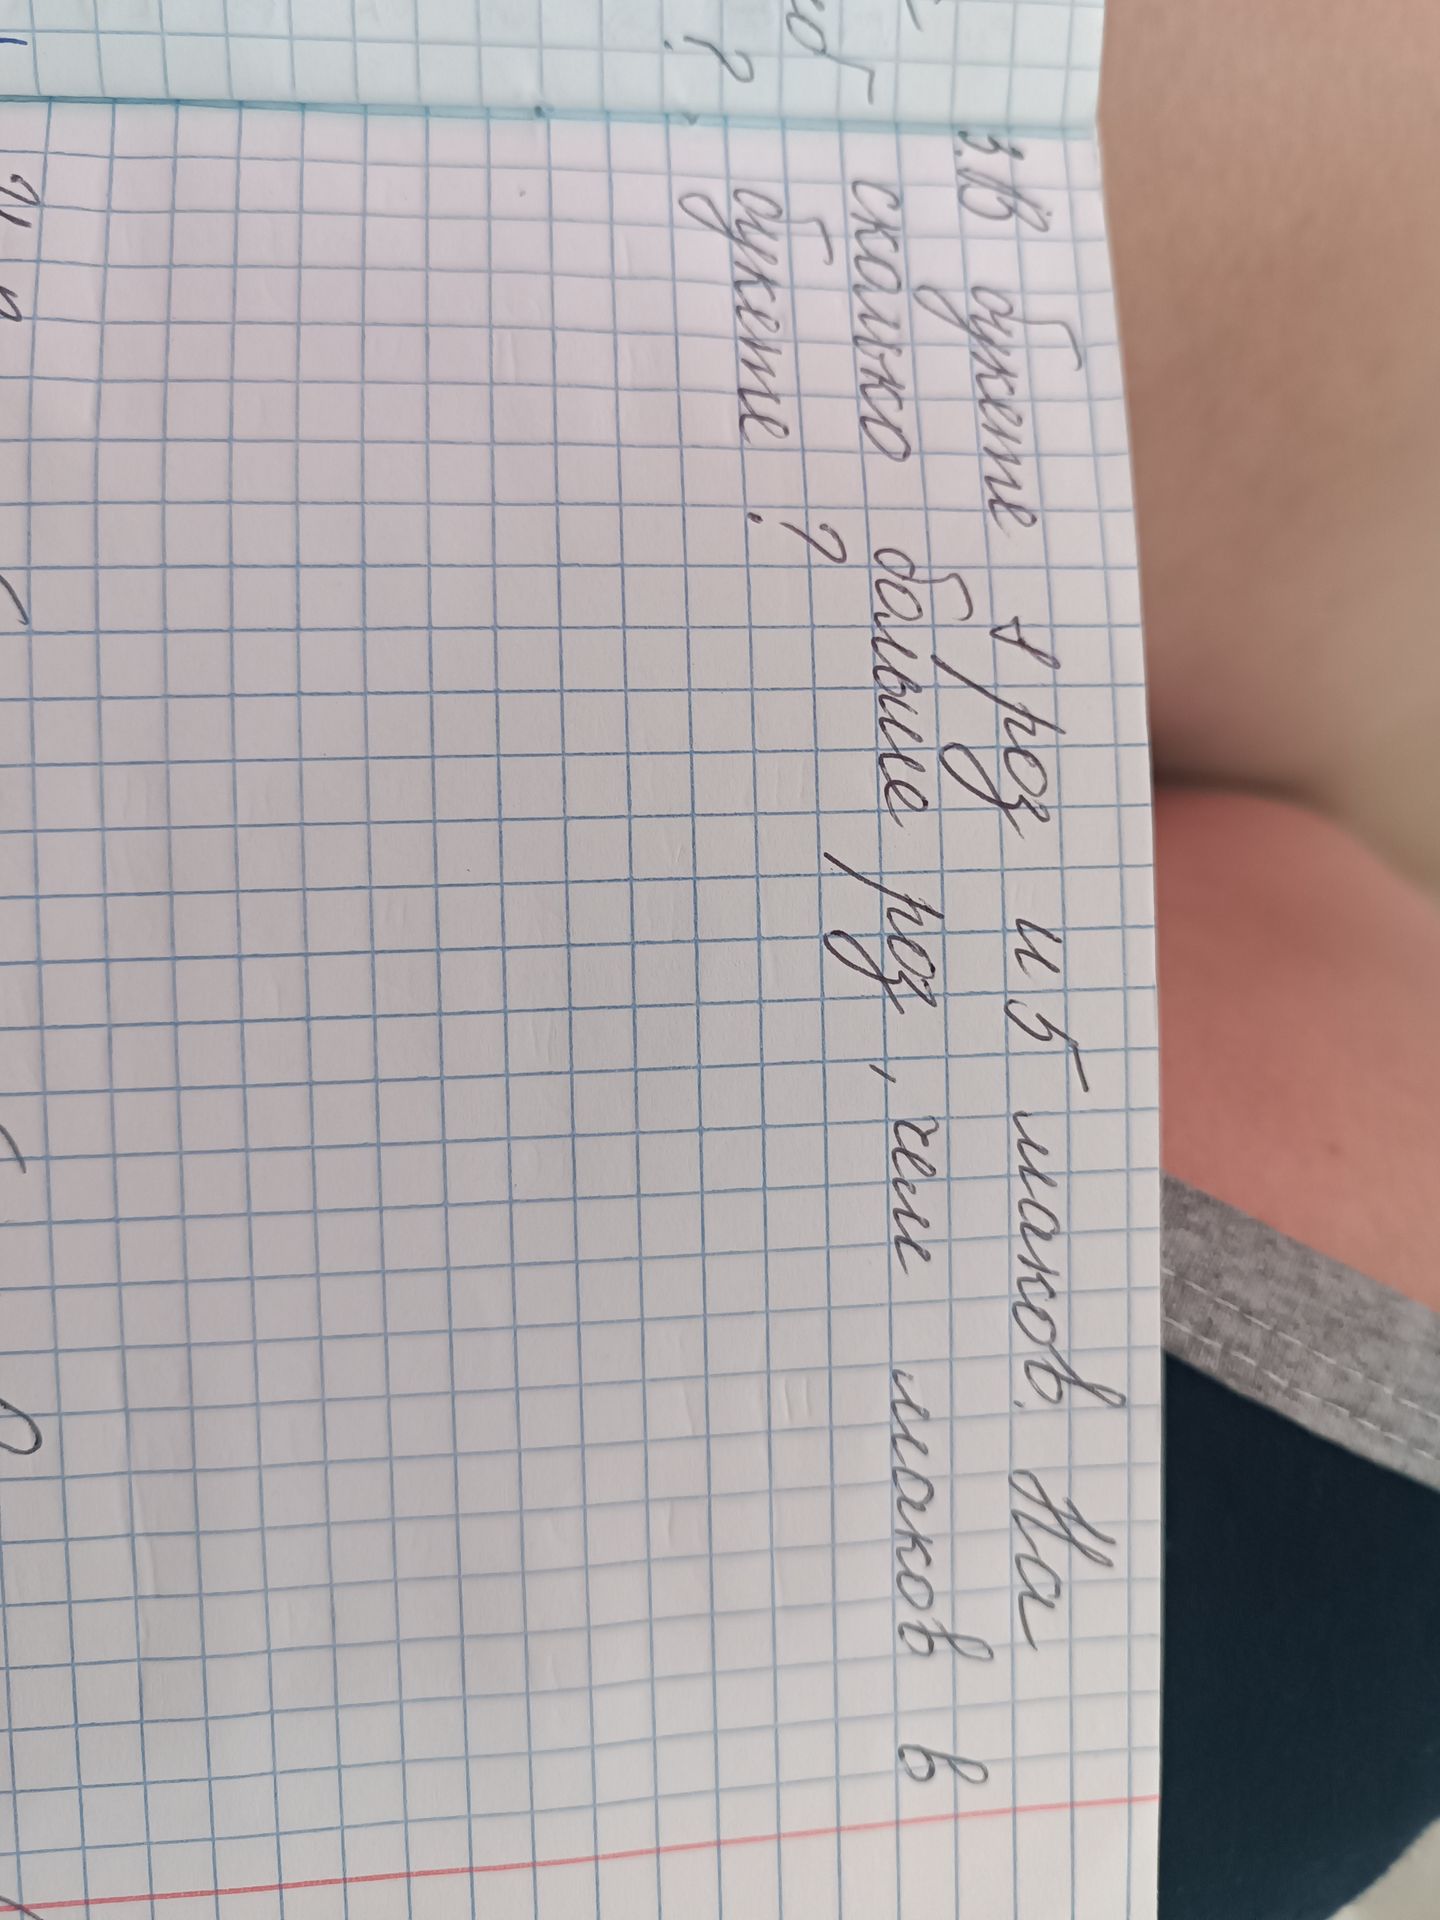 3. В букете 8 роз и 5 маков. На
сколько больше роз, чем маков в
букете ?